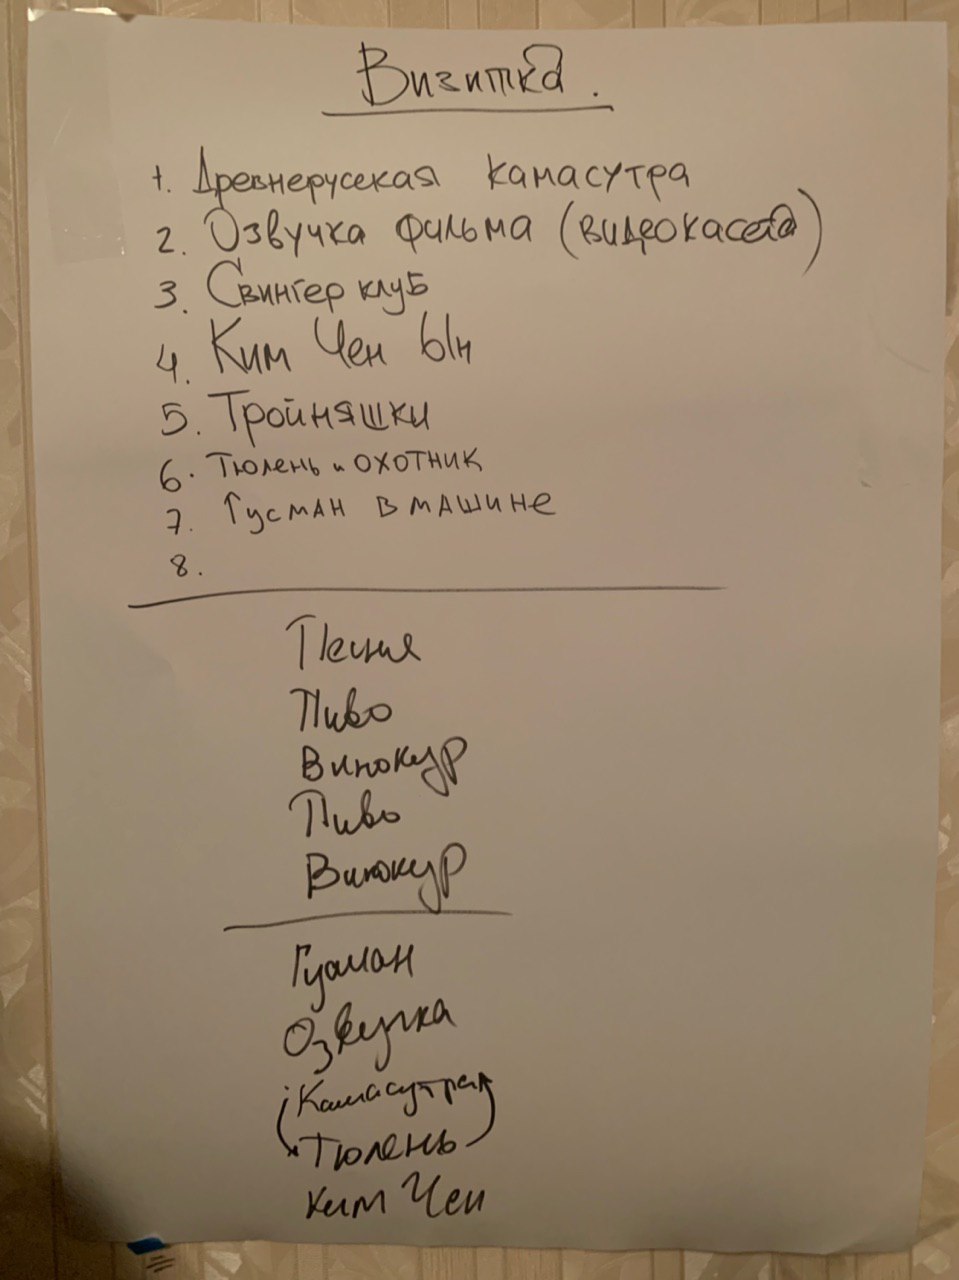 Визитка.
1. Древнерусская камасутра
2. Озвучка фильма (видеокасета)
3. Свингер клуб
4. Ким Чен Ын
5. Тройняшки
6. Тюлень и охотник
7. Гусман в машине
8.
Песня
Пиво
Винокур
Пиво
Винокур
Гусман
Озвучка
Камасутра
Тюлень
Ким Чен